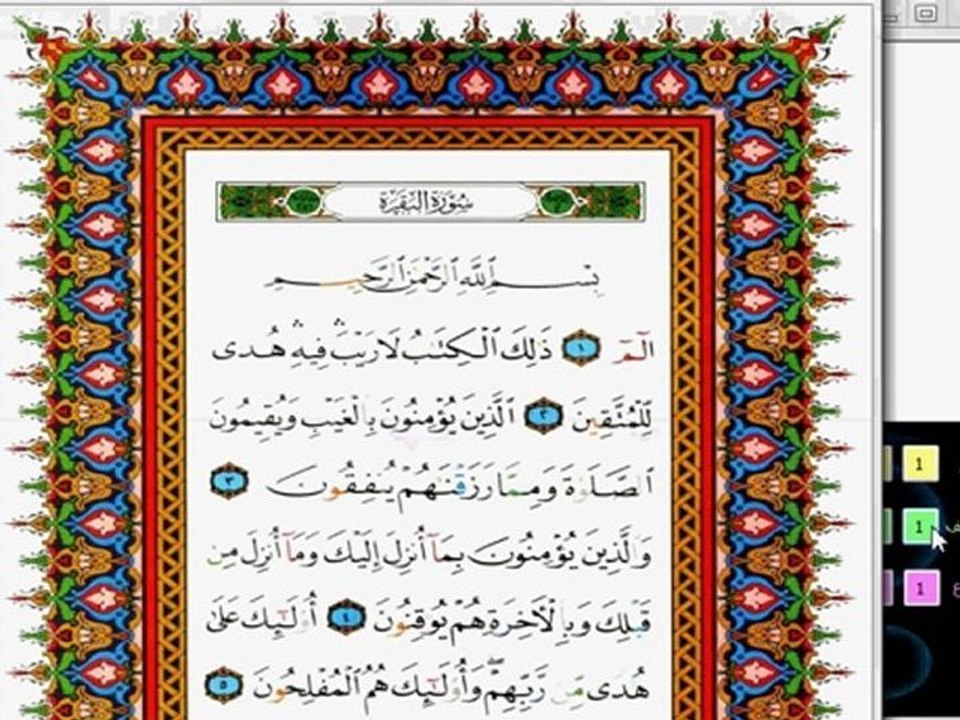 سُورَةُ البَقَرَةِ
بِسْمِ ٱللَّهِ ٱلرَّحْمَٰنِ ٱلرَّحِيمِ
الٓمٓ ١ ذَٰلِكَ ٱلْكِتَٰبُ لَا رَيْبَ ۛ فِيهِ ۛ هُدًى
لِّلْمُتَّقِينَ ٢ ٱلَّذِينَ يُؤْمِنُونَ بِٱلْغَيْبِ وَيُقِيمُونَ
ٱلصَّلَوٰةَ وَمِمَّا رَزَقْنَٰهُمْ يُنفِقُونَ ٣
وَٱلَّذِينَ يُؤْمِنُونَ بِمَآ أُنزِلَ إِلَيْكَ وَمَآ أُنزِلَ مِن
قَبْلِكَ وَبِٱلْأَخِرَةِ هُمْ يُوقِنُونَ ٤ أُو۟لَٰٓئِكَ عَلَىٰ
هُدًى مِّن رَّبِّهِمْ ۖ وَأُو۟لَٰٓئِكَ هُمُ ٱلْمُفْلِحُونَ ٥
1
1
1